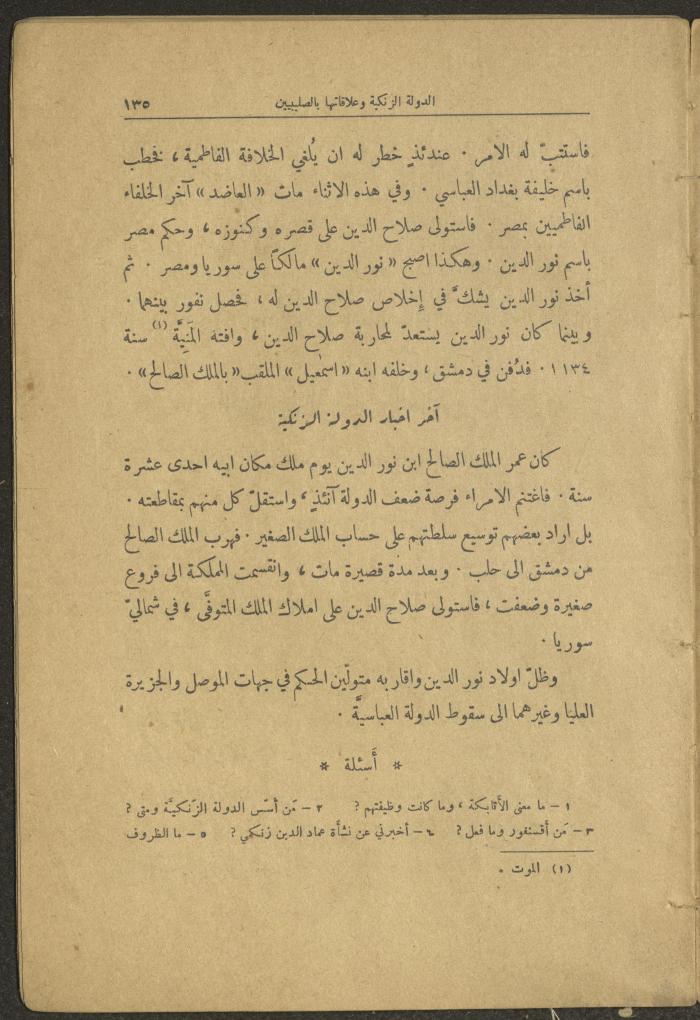 الدولة الزنكية وعلاقاتها بالصليبيين ١٣٥
فاستتبّ له الامر . عندئذٍ خطر له ان يُلغي الخلافة الفاطمية ، فخطب
باسم خليفة بغداد العباسي . وفي هذه الاثناء مات « العاضد » آخر الخلفاء
الفاطميين بمصر . فاستولى صلاح الدين على قصره وكنوزه ، وحكم مصر
باسم نور الدين . وهكذا اصبح « نور الدين » مالكاً على سوريا ومصر . ثم
أخذ نور الدين يشكّ في إخلاص صلاح الدين له ، فحصل نفور بينهما .
وبينما كان نور الدين يستعدّ لمحاربة صلاح الدين ، وافته المَنِيَّة (١) سنة
١١٣٤ . فدُفن في دمشق ، وخلفه ابنه « اسمعيل » الملقب « بالملك الصالح » .
آخر اخبار الدولة الزنكية
كان عمر الملك الصالح ابن نور الدين يوم ملك مكان ابيه احدى عشرة
سنة . فاغتنم الامراء فرصة ضعف الدولة آنئذٍ ، واستقلّ كل منهم بمقاطعته .
بل اراد بعضهم توسيع سلطتهم على حساب الملك الصغير . فهرب الملك الصالح
من دمشق الى حلب . وبعد مدة قصيرة مات ، وانقسمت المملكة الى فروع
صغيرة وضعفت ، فاستولى صلاح الدين على املاك الملك المتوفَّى ، في شماليّ
سوريا .
وظلّ اولاد نور الدين واقاربه متولّين الحكم في جهات الموصل والجزيرة
العليا وغيرهما الى سقوط الدولة العباسيَّة .
* أَسئلة *
١ – ما معنى الأتابكة ، وما كانت وظيفتهم ؟ ٢ – مَن أسّس الدولة الزّنكيَّة ومتى ؟
٣ – مَن أقسنقور وما فعل ؟ ٤ – أخبرني عن نشأة عماد الدين زنكي ؟ ٥ – ما الظروف
(١) الموت .